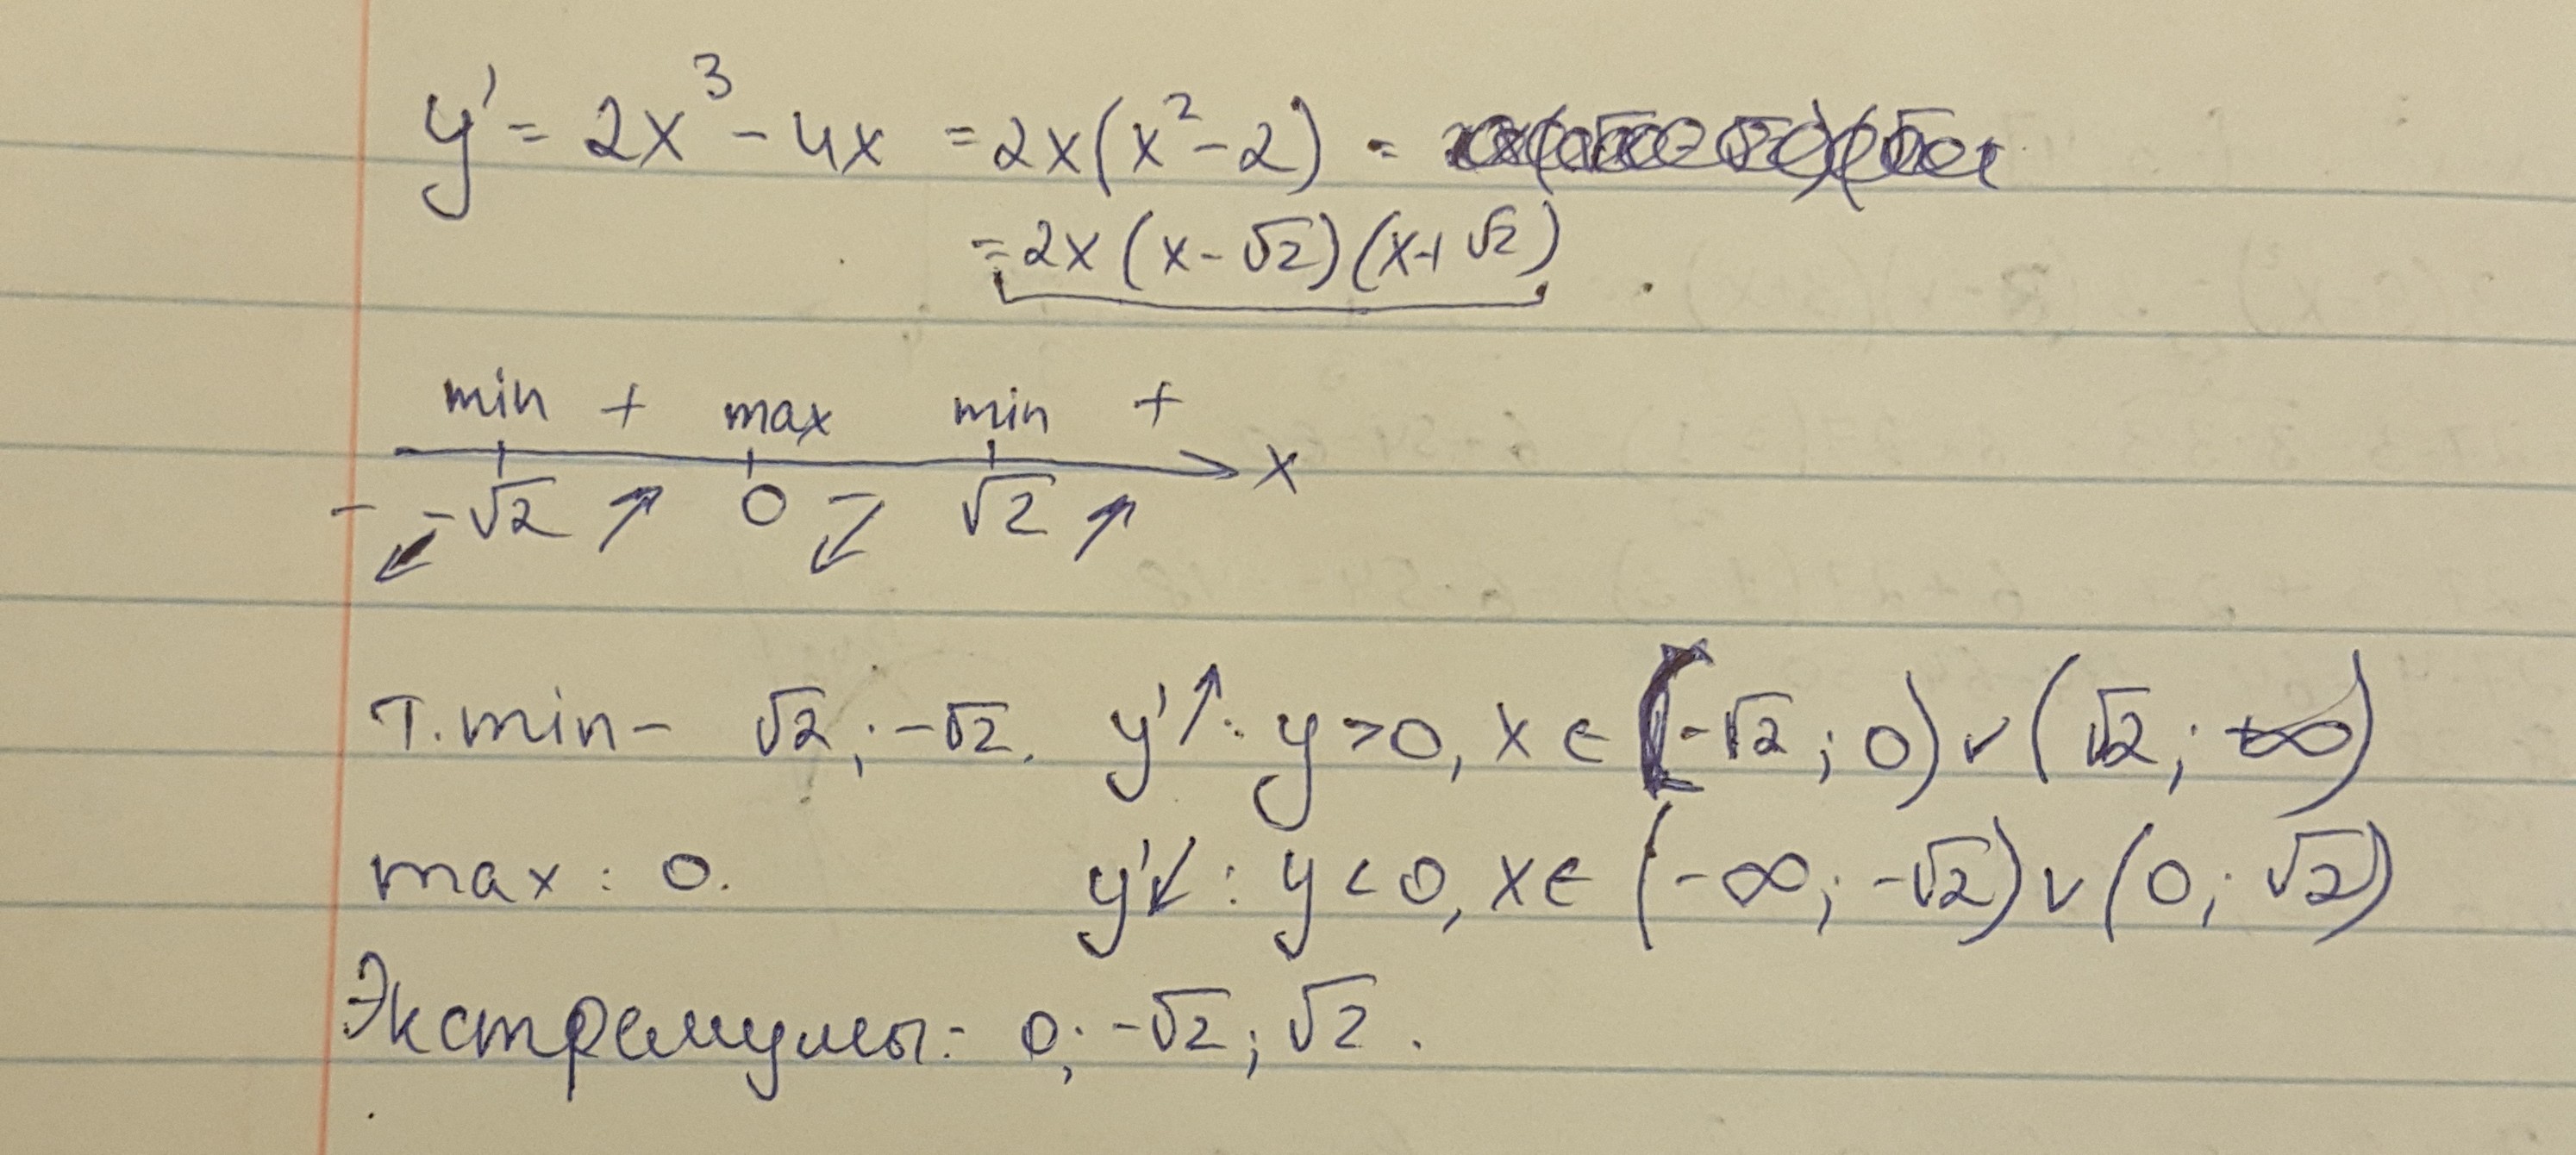 y' = 2x³ - 4x = 2x(x² - 2) =
= 2x(x - √2)(x + √2)
min + max min +
- -√2 ↗ 0 - √2 ↗ x
↙ ↙
т. min - √2; -√2. y'↑: y > 0, x ∈ (-√2; 0) ∨ (√2; +∞)
max: 0. y'↓: y < 0, x ∈ (-∞; -√2) ∨ (0; √2)
Экстремумы: 0; -√2; √2.